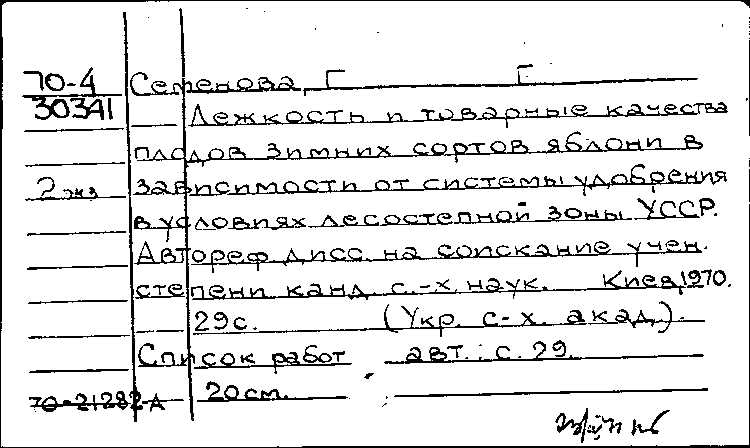 70-4 Семенова, Г Г
30341
Лежкость и товарные качества
плодов зимних сортов яблони в
2 экз зависимости от системы удобрения
в условиях лесостепной зоны УССР.
Автореф. дисс. на соискание учен.
степени канд. с.-х. наук. Киев, 1970.
29 с. (Укр. с-х. акад.).
Список работ авт.: с. 29.
70-21282-А 20 см.